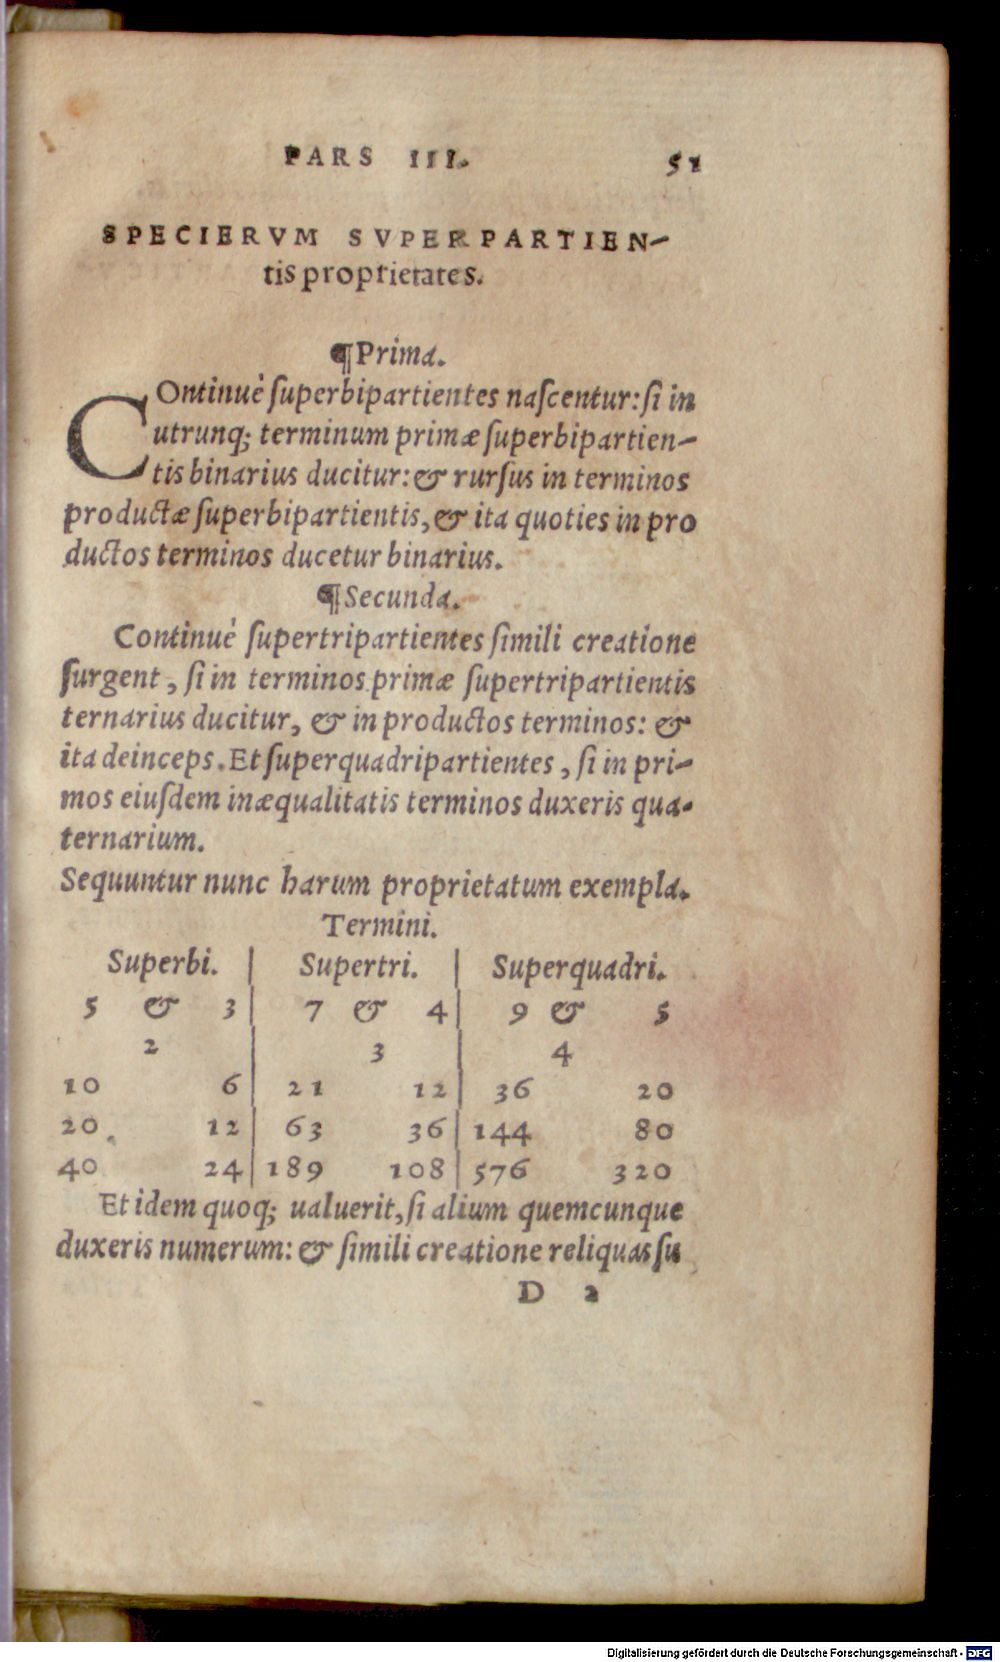 PARS III. 51
SPECIERVM SVPERPARTIEN-
tis proprietates.
¶Prima.
COntinuè ſuperbipartientes naſcentur: ſi in
utrunq; terminum primæ ſuperbipartien-
tis binarius ducitur: & rurſus in terminos
productæ ſuperbipartientis, & ita quoties in pro
ductos terminos ducetur binarius.
¶Secunda.
Continuè ſupertripartientes ſimili creatione
ſurgent, ſi in terminos primæ ſupertripartientis
ternarius ducitur, & in productos terminos: &
ita deinceps. Et ſuperquadripartientes, ſi in pri-
mos eiuſdem inæqualitatis terminos duxeris qua-
ternarium.
Sequuntur nunc harum proprietatum exempla.
Termini.
Superbi. | Supertri. | Superquadri.
5 & 3 | 7 & 4 | 9 & 5
2 | 3 | 4
10 6 | 21 12 | 36 20
20 12 | 63 36 | 144 80
40 24 | 189 108 | 576 320
Et idem quoq; ualuerit, ſi alium quemcunque
duxeris numerum: & ſimili creatione reliquas ſu
D 2
Digitalisierung gefördert durch die Deutsche Forschungsgemeinschaft - DFG